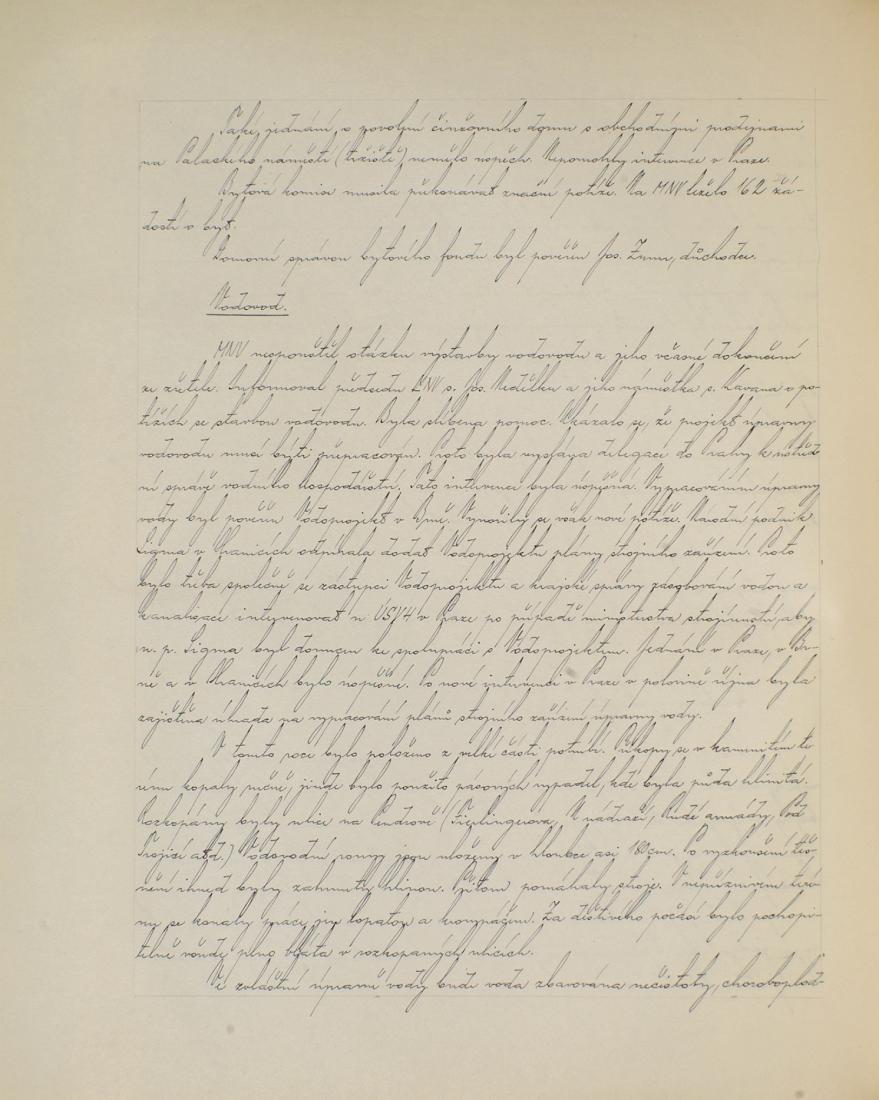 Také jednání o povolení činžovního domu s obchodními prodejnami
na Palackého náměstí (tržiště) nemělo úspěch. Nepomohly intervence v Praze.
Bytová komise musila překonávat značné potíže. Na MNV leželo 162 žá-
dostí o byt.
Domovní správou bytového fondu byl pověřen Jos. Zima, důchodce.
Vodovod.
MNV nespouštěl otázku výstavby vodovodu a jeho včasné dokončení
ze zřetele. Informoval předsedu KNV s. Jos. Nedělku a jeho náměstka s. Kavana o po-
tížích se stavbou vodovodu. Byla slíbena pomoc. Ukázalo se, že projekt úpravny
vodovodu musí býti přepracován. Proto byla vyslána delegace do Prahy k ústřed-
ní správě vodního hospodářství. Tato intervence byla úspěšná. Vypracováním úpravny
vody byl pověřen Vodoprojekt v Brně. Vynořily se však nové potíže. Národní podnik
Sigma v Hranicích odmítala dodat Vodoprojektu plány strojního zařízení. Proto
bylo třeba společně se zástupci Vodoprojektu a krajské správy zásobování vodou a
kanalisace intervenovat u ÚSVH v Praze po případě ministerstva strojírenství, aby
n. p. Sigma byl donucen ke spolupráci s Vodoprojektem. Jednání v Praze, v Br-
ně a v Hranicích bylo úspěšné. Po nové intervenci v Praze v polovině října byla
zajištěna úhrada na vypracování plánů strojního zařízení úpravny vody.
V tomto roce bylo položeno z velké části potrubí. Příkopy se v kamenitém te-
rénu kopaly ručně, jinde bylo použito pásových rypadel, kde byla půda hlinitá.
Rozkopány byly ulice na Pindrově (Fierlingerova, K nádraží, Rudé armády, Pod
Trojicí atd.) Vodovodní roury jsou uloženy v hloubce asi 180 cm. Po vyzkoušení těs-
nění ihned byly zahrnuty hlínou. Přitom pomáhaly stroje. V nepříznivém teré-
nu se konaly práce jen lopatou a krompáčem. Za deštivého počasí bylo pochopi-
telně všude plno bláta v rozkopaných ulicích.
Ve zvláštní úpravně vody bude voda zbavována nečistoty, choroboplod-